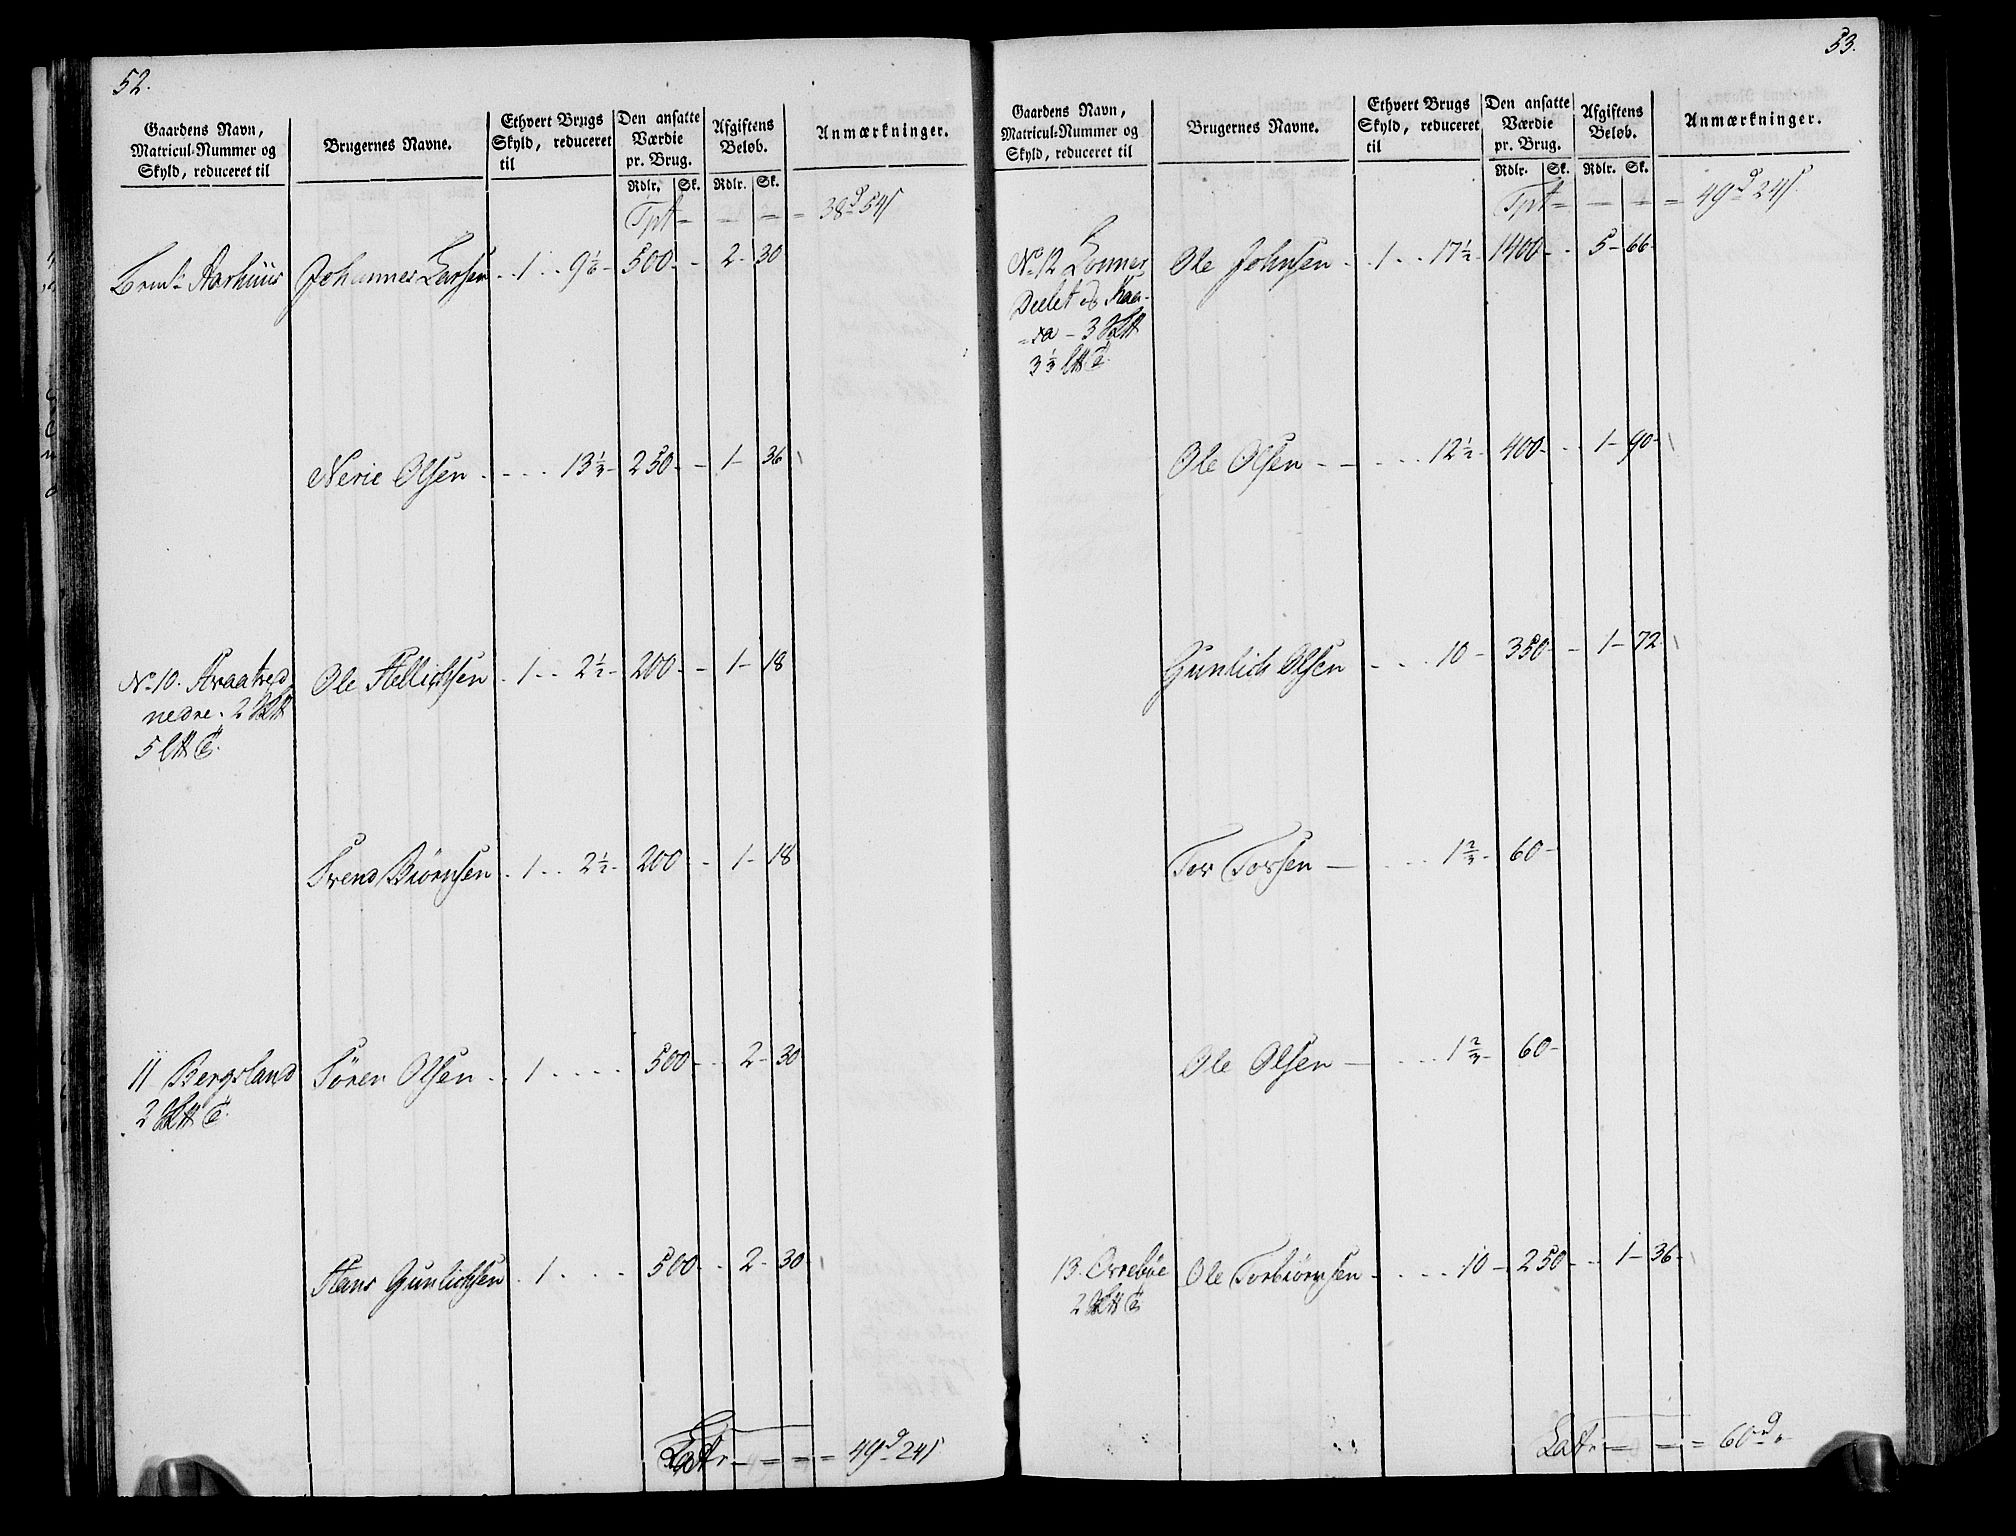 52.
Gaardens Navn,
Matricul-Nummer og
Skyld, reduceret til
Brugernes Navne.
Ethvert Brugs
Skyld, reduceret
til
Den ansatte
Værdie
pr. Brug.
Rdlr. Sk.
Afgiftens
Beløb.
Rdlr. Sk.
Anmærkninger.
Tpt = = = = 38d 54s
Aarhuus Johannes Larsen . 1 . . 9 1/6 - 500 - - 2 - 30
Nerie Olsen . - . . 13 1/3 - 250 - - 1 - 36
No 10. Aaatved Ole Kellichsen . 1 . . 2 1/2 - 200 - - 1 - 18
nedre. 2
5
Svend Biørnsen . 1 . . 2 1/2 - 200 - - 1 - 18
11 Bergsland Sören Olsen . . 1 . . . . 500 - . 2 - 30
2
Hans Gunlichsen . 1 . . . . 500 - . 2 - 30
Lat. = = = = 49d 24s
53.
Gaardens Navn,
Matricul-Nummer og
Skyld, reduceret til
Brugernes Navne.
Ethvert Brugs
Skyld, reduceret
til
Den ansatte
Værdie
pr. Brug.
Rdlr. Sk.
Afgiftens
Beløb.
Rdlr. Sk.
Anmærkninger.
Tpt = = = = 49d 24s
No 12 Lonner Ole Johnsen . . 1 . . 17 1/2 - 1400 - . 5 - 66 -
Deelet og Kaa-
= xa - 3
3 1/3
Ole Olsen - - . . . 12 1/2 - 400 - . 1 - 90 -
Gunlich Olsen - . . . 10 - 350 - - 1 - 72 -
Tor Torsen - . . . . 1 2/3 - 60 -
Ole Olsen - . . . . 1 2/3 - 60 -
13. Orrebøe Ole Torbiørnsen . . . . . 10 - 250 - . 1 - 36 -
2
Lat. = = = = 60d.